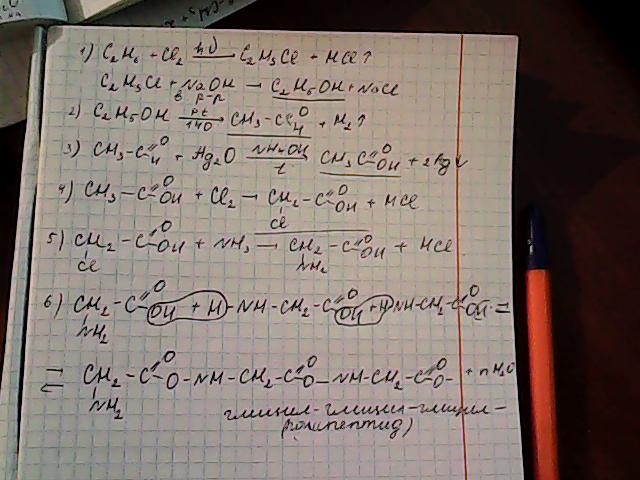 1) C₂H₆ + Cl₂ —hν→ C₂H₅Cl + HCl↑
C₂H₅Cl + NaOH → C₂H₅OH + NaCl
в р-р
2) C₂H₅OH —pt 140→ CH₃-C=O H + H₂↑
3) CH₃-C=O H + Ag₂O —NH₄OH t→ CH₃C=O OH + 2Ag↓
4) CH₃-C=O OH + Cl₂ → CH₂-C=O OH + HCl
Cl
5) CH₂-C=O OH + NH₃ → CH₂-C=O OH + HCl
Cl NH₂
6) CH₂-C=O OH + H-NH-CH₂-C=O OH + H NH-CH₂-C=O OH ⇌
NH₂
⇌ CH₂-C=O O-NH-CH₂-C=O O-NH-CH₂-C=O O- + nH₂O
NH₂
глицил-глицил-глицил-
полипептид)